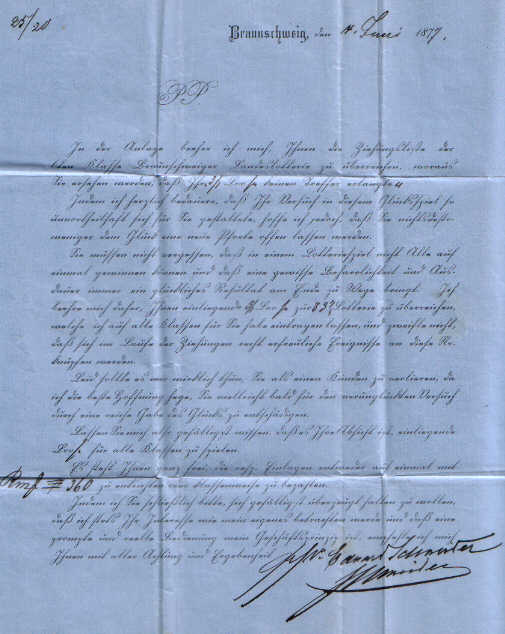 25/20
Braunschweig, den 4. Juni 1877.
PP
In der Anlage beehre ich mich, Ihnen die Ziehungsliste der
6ten Klasse Braunschweiger Landeslotterie zu überreichen, woraus
Sie ersehen werden, daß Loose keinen Treffer erlangten.
Indem ich herzlich bedaure, daß Ihr Versuch in diesem Glücksspiel so
unvortheilhaft sich für Sie gestaltete, hoffe ich jedoch, daß Sie nichtsdesto-
weniger dem Glück eine neue Pforte offen lassen werden.
Sie müssen nicht vergessen, daß in einem Lotteriespiel nicht Alle auf
einmal gewinnen können und daß eine gewisse Beharrlichkeit und Aus-
dauer immer ein glückliches Resultat am Ende zu Wege bringt. Ich
beehre mich daher, Ihnen einliegende Loose zur 83 Lotterie zu überreichen,
welche ich auf alle Klassen für Sie habe eintragen lassen, und zweifle nicht,
daß sich im Laufe der Ziehungen recht erfreuliche Ereignisse an diese Re-
knüpfen werden.
Leid sollte es mir wirklich thun, Sie als einen Kunden zu verlieren, da
ich die beste Hoffnung hege, Sie vielleicht bald für den verunglückten Versuch
durch eine reiche Gabe des Glücks zu entschädigen.
Lassen Sie mich also gefälligst wissen, daß es Ihre Absicht ist, einliegende
Loose für alle Klassen zu spielen.
Es steht Ihnen ganz frei, die resp. Einlagen entweder auf einmal mit
Rmk 360 zu entrichten oder klassenweise zu bezahlen.
Indem ich Sie schließlich bitte, sich gefälligst überzeugt halten zu wollen,
daß ich stets Ihr Interesse wie mein eigenes betrachten werde und daß eine
prompte und reelle Bedienung mein Geschäftsprinzip ist, empfehle ich mich
Ihnen mit aller Achtung und Ergebenheit
Eduard